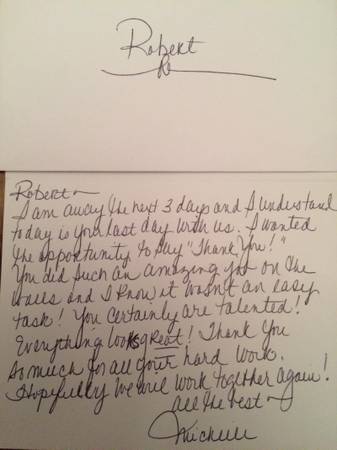 Robert
Robert~
I am away the next 3 days and I understand
today is your last day with us. I wanted
the opportunity to say "Thank You!"
You did such an amazing job on the
walls and I know it wasn't an easy
task! You certainly are talented!
Everything looks great! Thank You
so much for all your hard work.
Hopefully we will work together again!
All the best~
Michelle